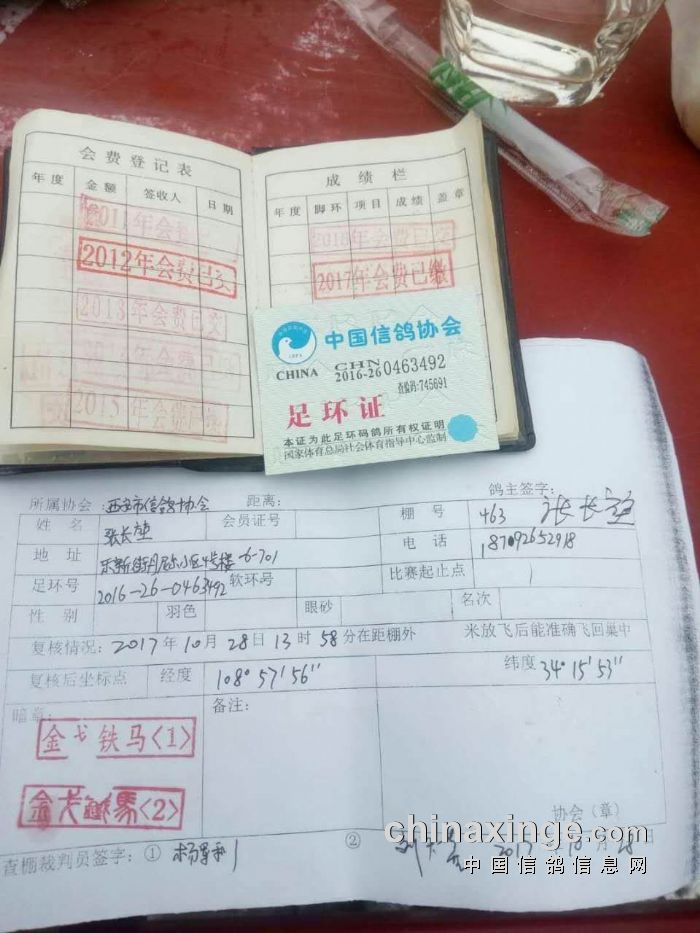 会费登记表
年度 金额 签收人 日期
2011年会费
2012年会费已交
2013年会费已交
2015年会费已缴
成绩栏
年度 脚环 项目 成绩 盖章
2016年会费已交
2017年会费已缴
中国信鸽协会
CHINA CHN
2016-26 0463492
查验码:745691
足环证
本证为此足环码鸽所有权证明
国家体育总局社会体育指导中心监制
所属协会:西安市信鸽协会 距离: 鸽主签字:
姓名 张长 会员证号 棚号 463 张长
地址 东新街 小区4号楼-6-701 电话 187092652918
足环号 2016-26-0463492 软环号 比赛起止点
性别 羽色 眼砂 名次
复核情况:2017年10月28日13时58分在距棚外 米放飞后能准确飞回巢中
复核后坐标点 经度 108°57'56" 纬度 34°15'53"
暗章: 备注:
金戈铁马<1>
金戈鐵馬<2>
协会(章)
查棚裁判员签字:① 杨 利 ② 刘 2017年10月28日
chinaxinge.com
中国信鸽信息网